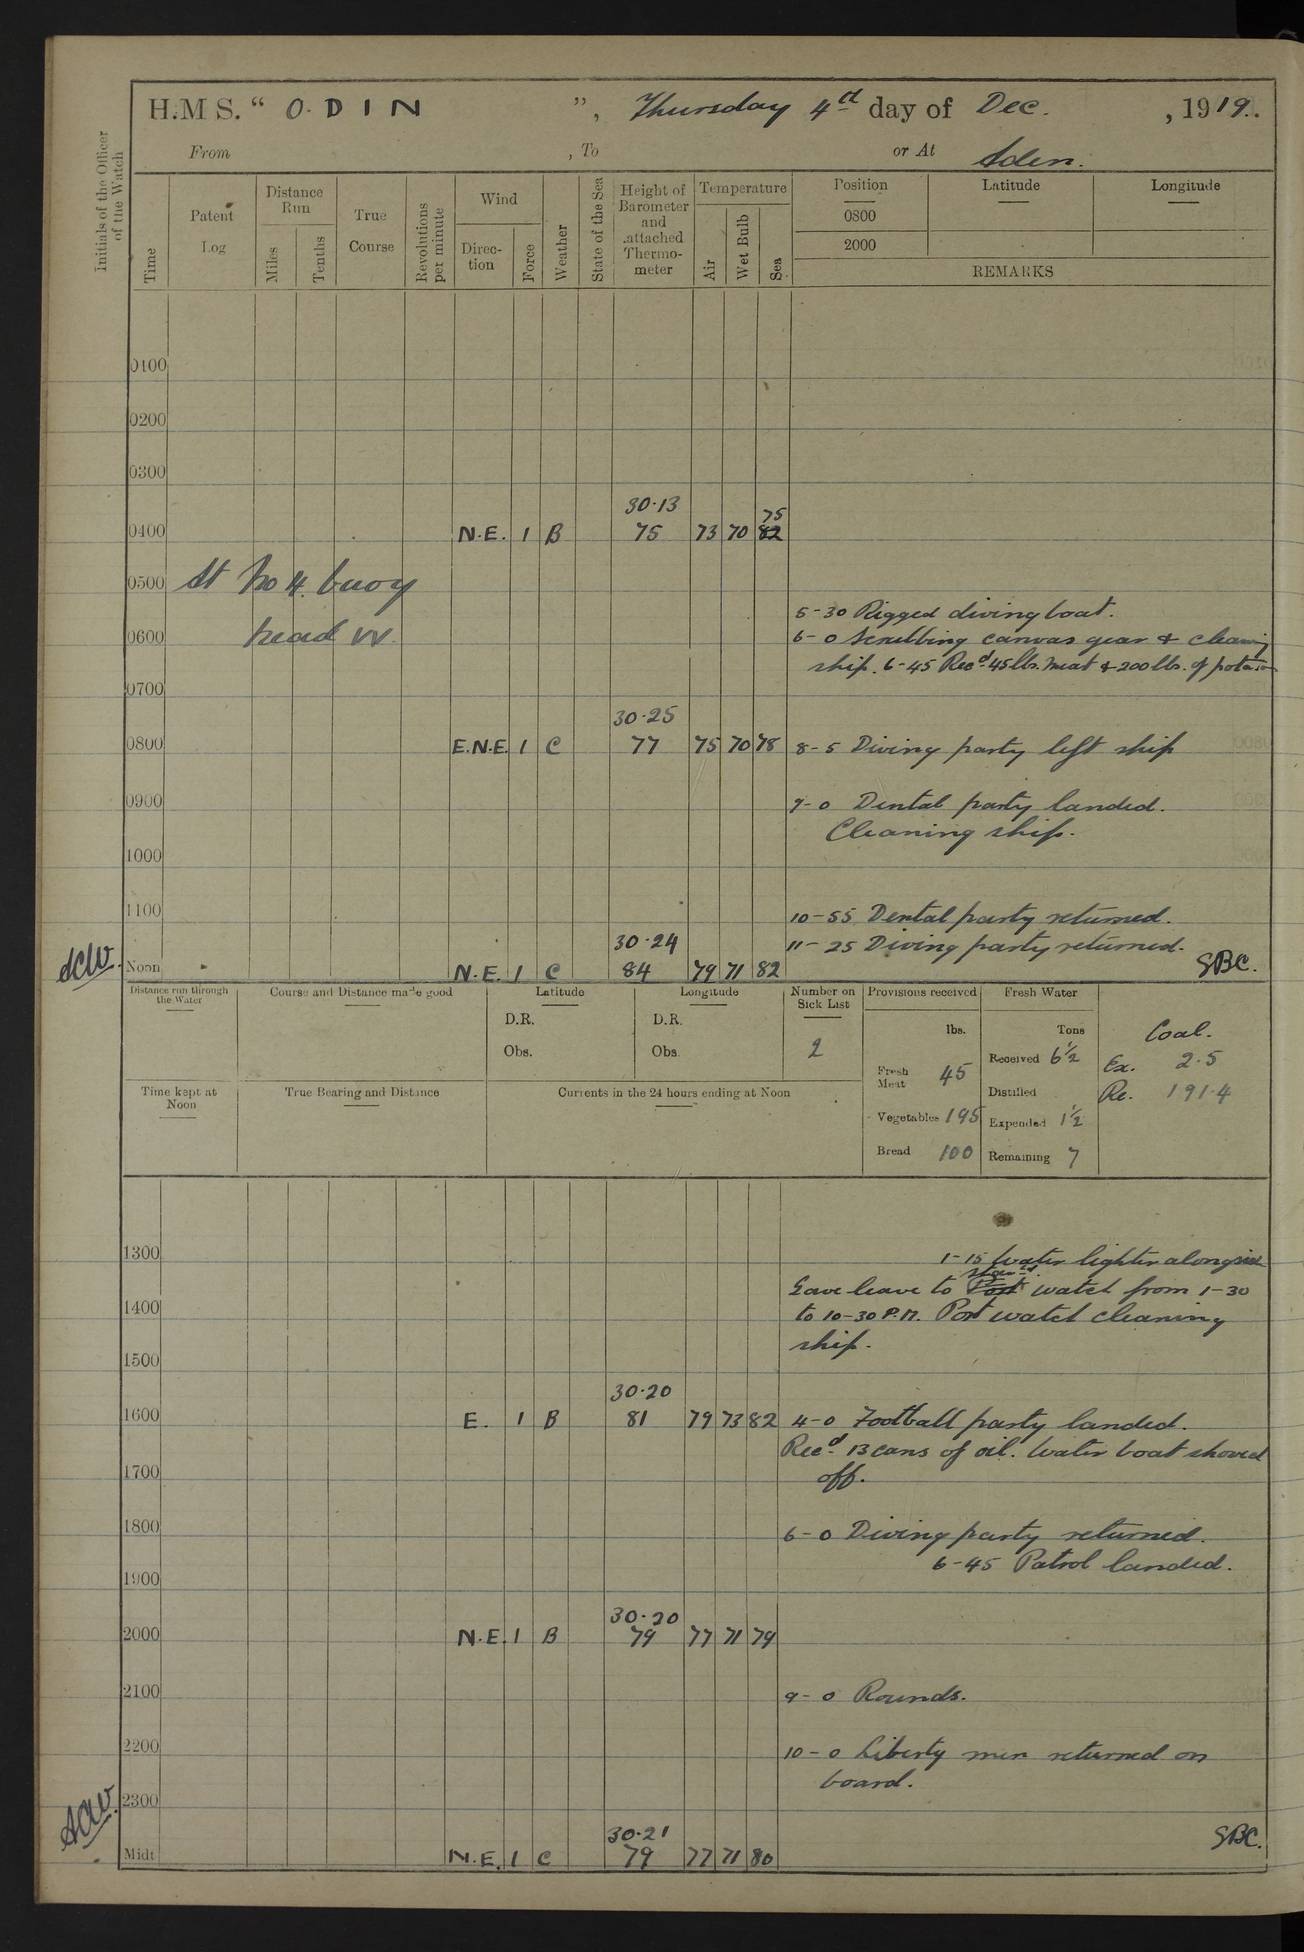 H.M S. " O. D I N ", Thursday 4th day of Dec. , 1919.
From , To or At Aden.
Initials of the Officer of the Watch
Time
Patent Log
Distance Run
Miles
Tenths
True Course
Revolutions per minute
Wind
Direc-tion
Force
Weather
State of the Sea
Height of Barometer and attached Thermo-meter
Temperature
Air
Wet Bulb
Sea
Position
Latitude
Longitude
0800
2000
REMARKS
0100
0200
0300
30·13 75
0400 N.E. 1 B 75 73 70 82
0500 At No 4 buoy
5-30 Rigged diving boat.
0600 head W. 6-0 Scrubbing canvas gear & cleaning
ship. 6-45 Recd 45 lbs. meat & 200 lbs. of potatoes
0700
30·25
0800 E.N.E. 1 C 77 75 70 78 8-5 Diving party left ship
0900 9-0 Dental party landed.
Cleaning ship.
1000
1100 10-55 Dental party returned.
30·24 11-25 Diving party returned.
Noon N.E. 1 C 84 79 71 82 SBC.
Distance run through the Water
Course and Distance made good
Latitude
D.R.
Obs.
Longitude
D.R.
Obs.
Number on Sick List
2
Provisions received
lbs.
Fresh Meat 45
Vegetables 195
Bread 100
Fresh Water
Tons
Received 6½
Distilled
Expended 1½
Remaining 7
Coal.
Ex. 2·5
Re. 191·4
Time kept at Noon
True Bearing and Distance
Currents in the 24 hours ending at Noon
1300 1-15 Water lighter alongside
starbd.
Gave leave to Port watch from 1-30
1400 to 10-30 P.M. Port watch cleaning
ship.
1500
30·20
1600 E. 1 B 81 79 73 82 4-0 Football party landed.
Recd 13 cans of oil. Water boat shoved
1700 off.
1800 6-0 Diving party returned.
6-45 Patrol landed.
1900
30·20
2000 N.E. 1 B 79 77 71 79
2100 9-0 Rounds.
2200 10-0 Liberty men returned on
board.
2300
30·21 SBC.
Midt N.E. 1 C 79 77 71 80